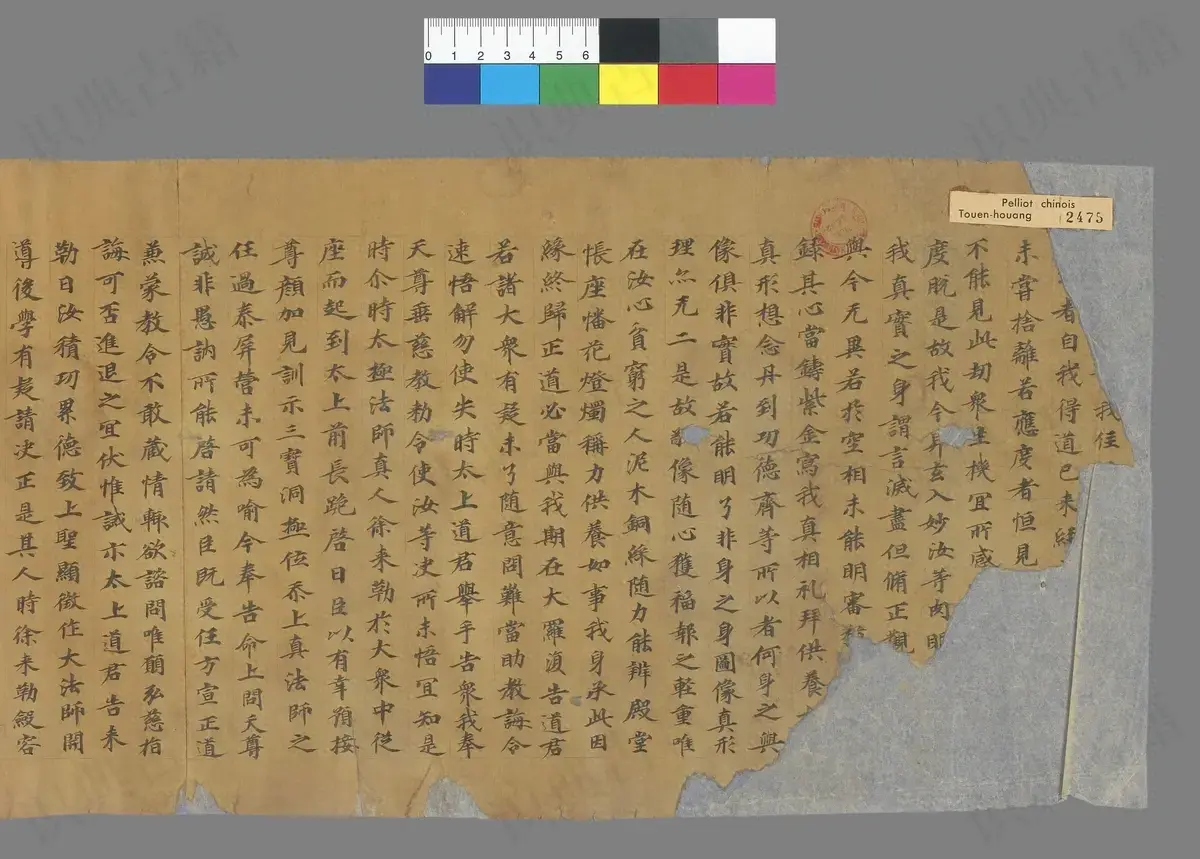 Pelliot chinois
Touen-houang 2475
0 1 2 3 4 5 6
我住
者白我得道已来
未嘗捨離若應度者恒見
不能見此劫衆生機冝所感
度脱是故我今昇玄入妙汝等肉眼
我真實之身謂言滅盡但脩正觀
與今无異若於空相未能明審
録其心當鑄紫金寫我真相礼拜供養
真形想念丹到功徳齊等所以者何身之與
像俱非實故若能明了非身之身圖像真形
理亦无二是故像随心獲福報之軽重唯
在汝心貧窮之人泥木銅綵随力能辨殿堂
帳座幡花燈燭稱力供養如事我身承此因
緣終歸正道必當與我期在大羅復告道君
若諸大衆有疑未了随意問難當助教誨令
速悟解勿使失時太上道君舉手告衆我奉
天尊垂慈教勑令使汝等决所未悟冝知是
時尒時太極法師真人徐来勒於大衆中従
座而起到太上前長跪啓曰臣以有幸預接
尊顔加見訓示三寳洞極位忝上真法師之
任過泰屏營未可為喻今奉告命上問天尊
誠非愚訥所能啓請然臣既受任方宣正道
兼蒙教令不敢蔵情輒欲諮問唯願弘慈指
誨可否進退之冝伏惟誡示太上道君告来
勒曰汝積功累德致上聖顯徵位大法師開
導後學有疑請决正是其人時徐来勒斂容
識典古籍